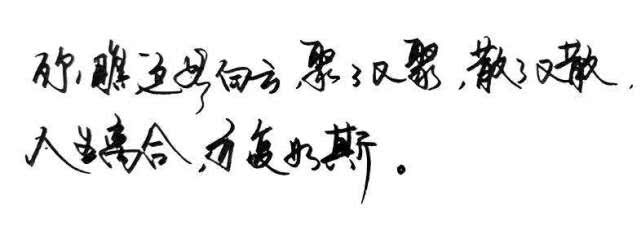 你瞧这些白云,聚了又聚,散了又散,
人生离合,亦复如斯。